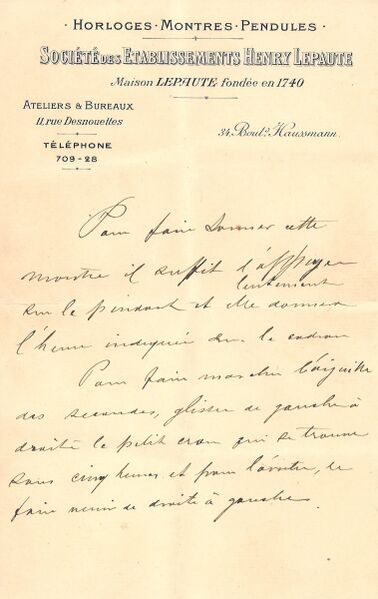 HORLOGES · MONTRES · PENDULES ·
SOCIÉTÉ DES ETABLISSEMENTS HENRY LEPAUTE
Maison LEPAUTE fondée en 1740
ATELIERS & BUREAUX
11, rue Desnouettes
TÉLÉPHONE
709-28
34, Boul.ᵈ Haussmann.
Pour faire sonner cette
montre il suffit d'appuyer
lentement
sur le pendant et elle donnera
l'heure indiquée sur le cadran
Pour faire marcher l'aiguille
des secondes, glisser de gauche à
droite le petit cran qui se trouve
sous cinq heures et pour l'arrêter, le
faire venir de droite à gauche.